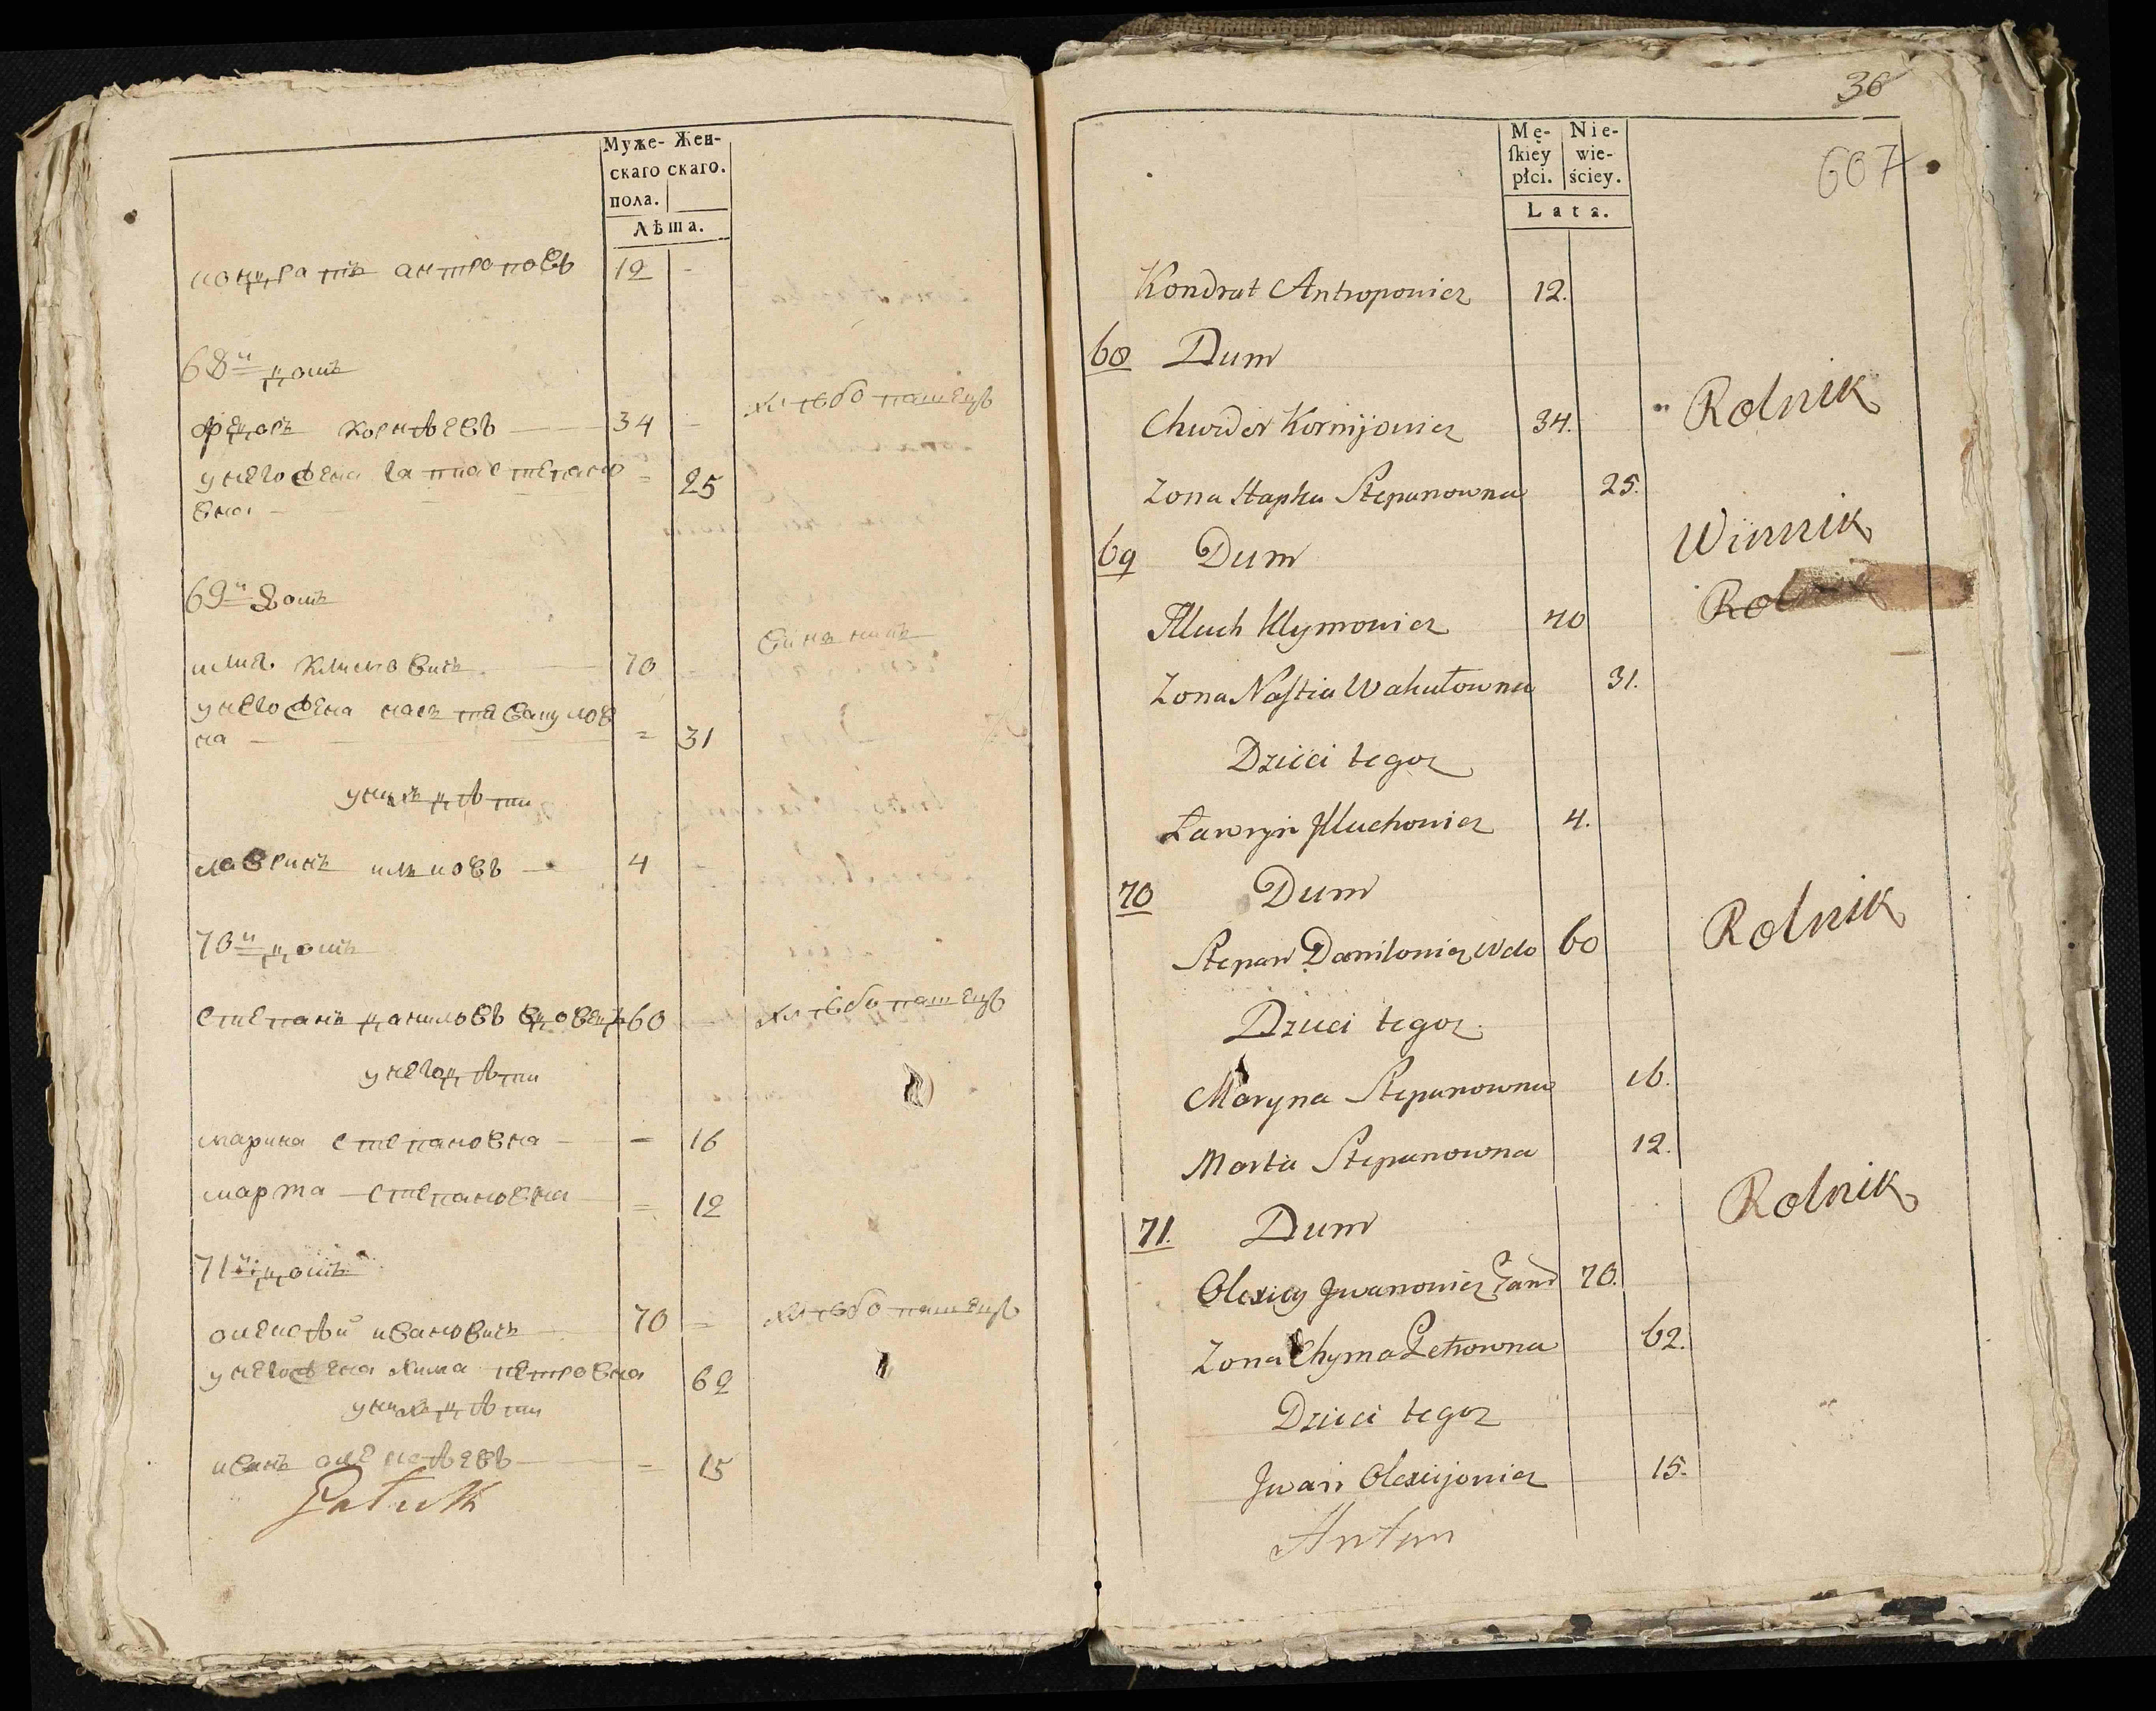 Муже- Жен-
скаго скаго.
пола.
Лѣта.
кондратъ антоновъ 12 -
68й домъ
федоръ корнѣевъ 34 - хлѣбопашецъ
у него жена гапка степано = 25
вна
69й домъ
илия климовичь 70 - винникъ
у него жена настя вакулов
на = 31
у нихъ дѣти
лавринъ ильковъ 4 -
70й домъ
степанъ даниловъ вдовецъ 60 - хлѣбопашецъ
у него дѣти
марина степановна = 16
марта степановна = 12
71й домъ
олексѣй ивановичь 70 = хлѣбопашецъ
у него жена хима петровна 62
у нихъ дѣти
иванъ олексѣевъ = 15
36
607
Mę- Nie-
ſkiey wie-
płci. ściey.
Lata.
Kondrat Antroponicz 12.
68 Dum
Chwedor Kornijowicz 34. Rolnik
Zona Hapka Stepanowna 25.
69 Dum Winnik
Illuch Klymowicz 40 Rolnik
Zona Naſtia Wakułowna 31.
Dzieci tegoz
Ławryn Illuchowicz 4.
70 Dum
Stepan Daniłowicz Wdo 60 Rolnik
Dzieci tegoz
Maryna Stepanowna 16.
Marta Stepanowna 12.
71. Dum Rolnik
Olexiey Jwanowicz 70.
Zona Chyma Petrowna 62.
Dzieci tegoz
Jwan Olexijowicz 15.
Antun